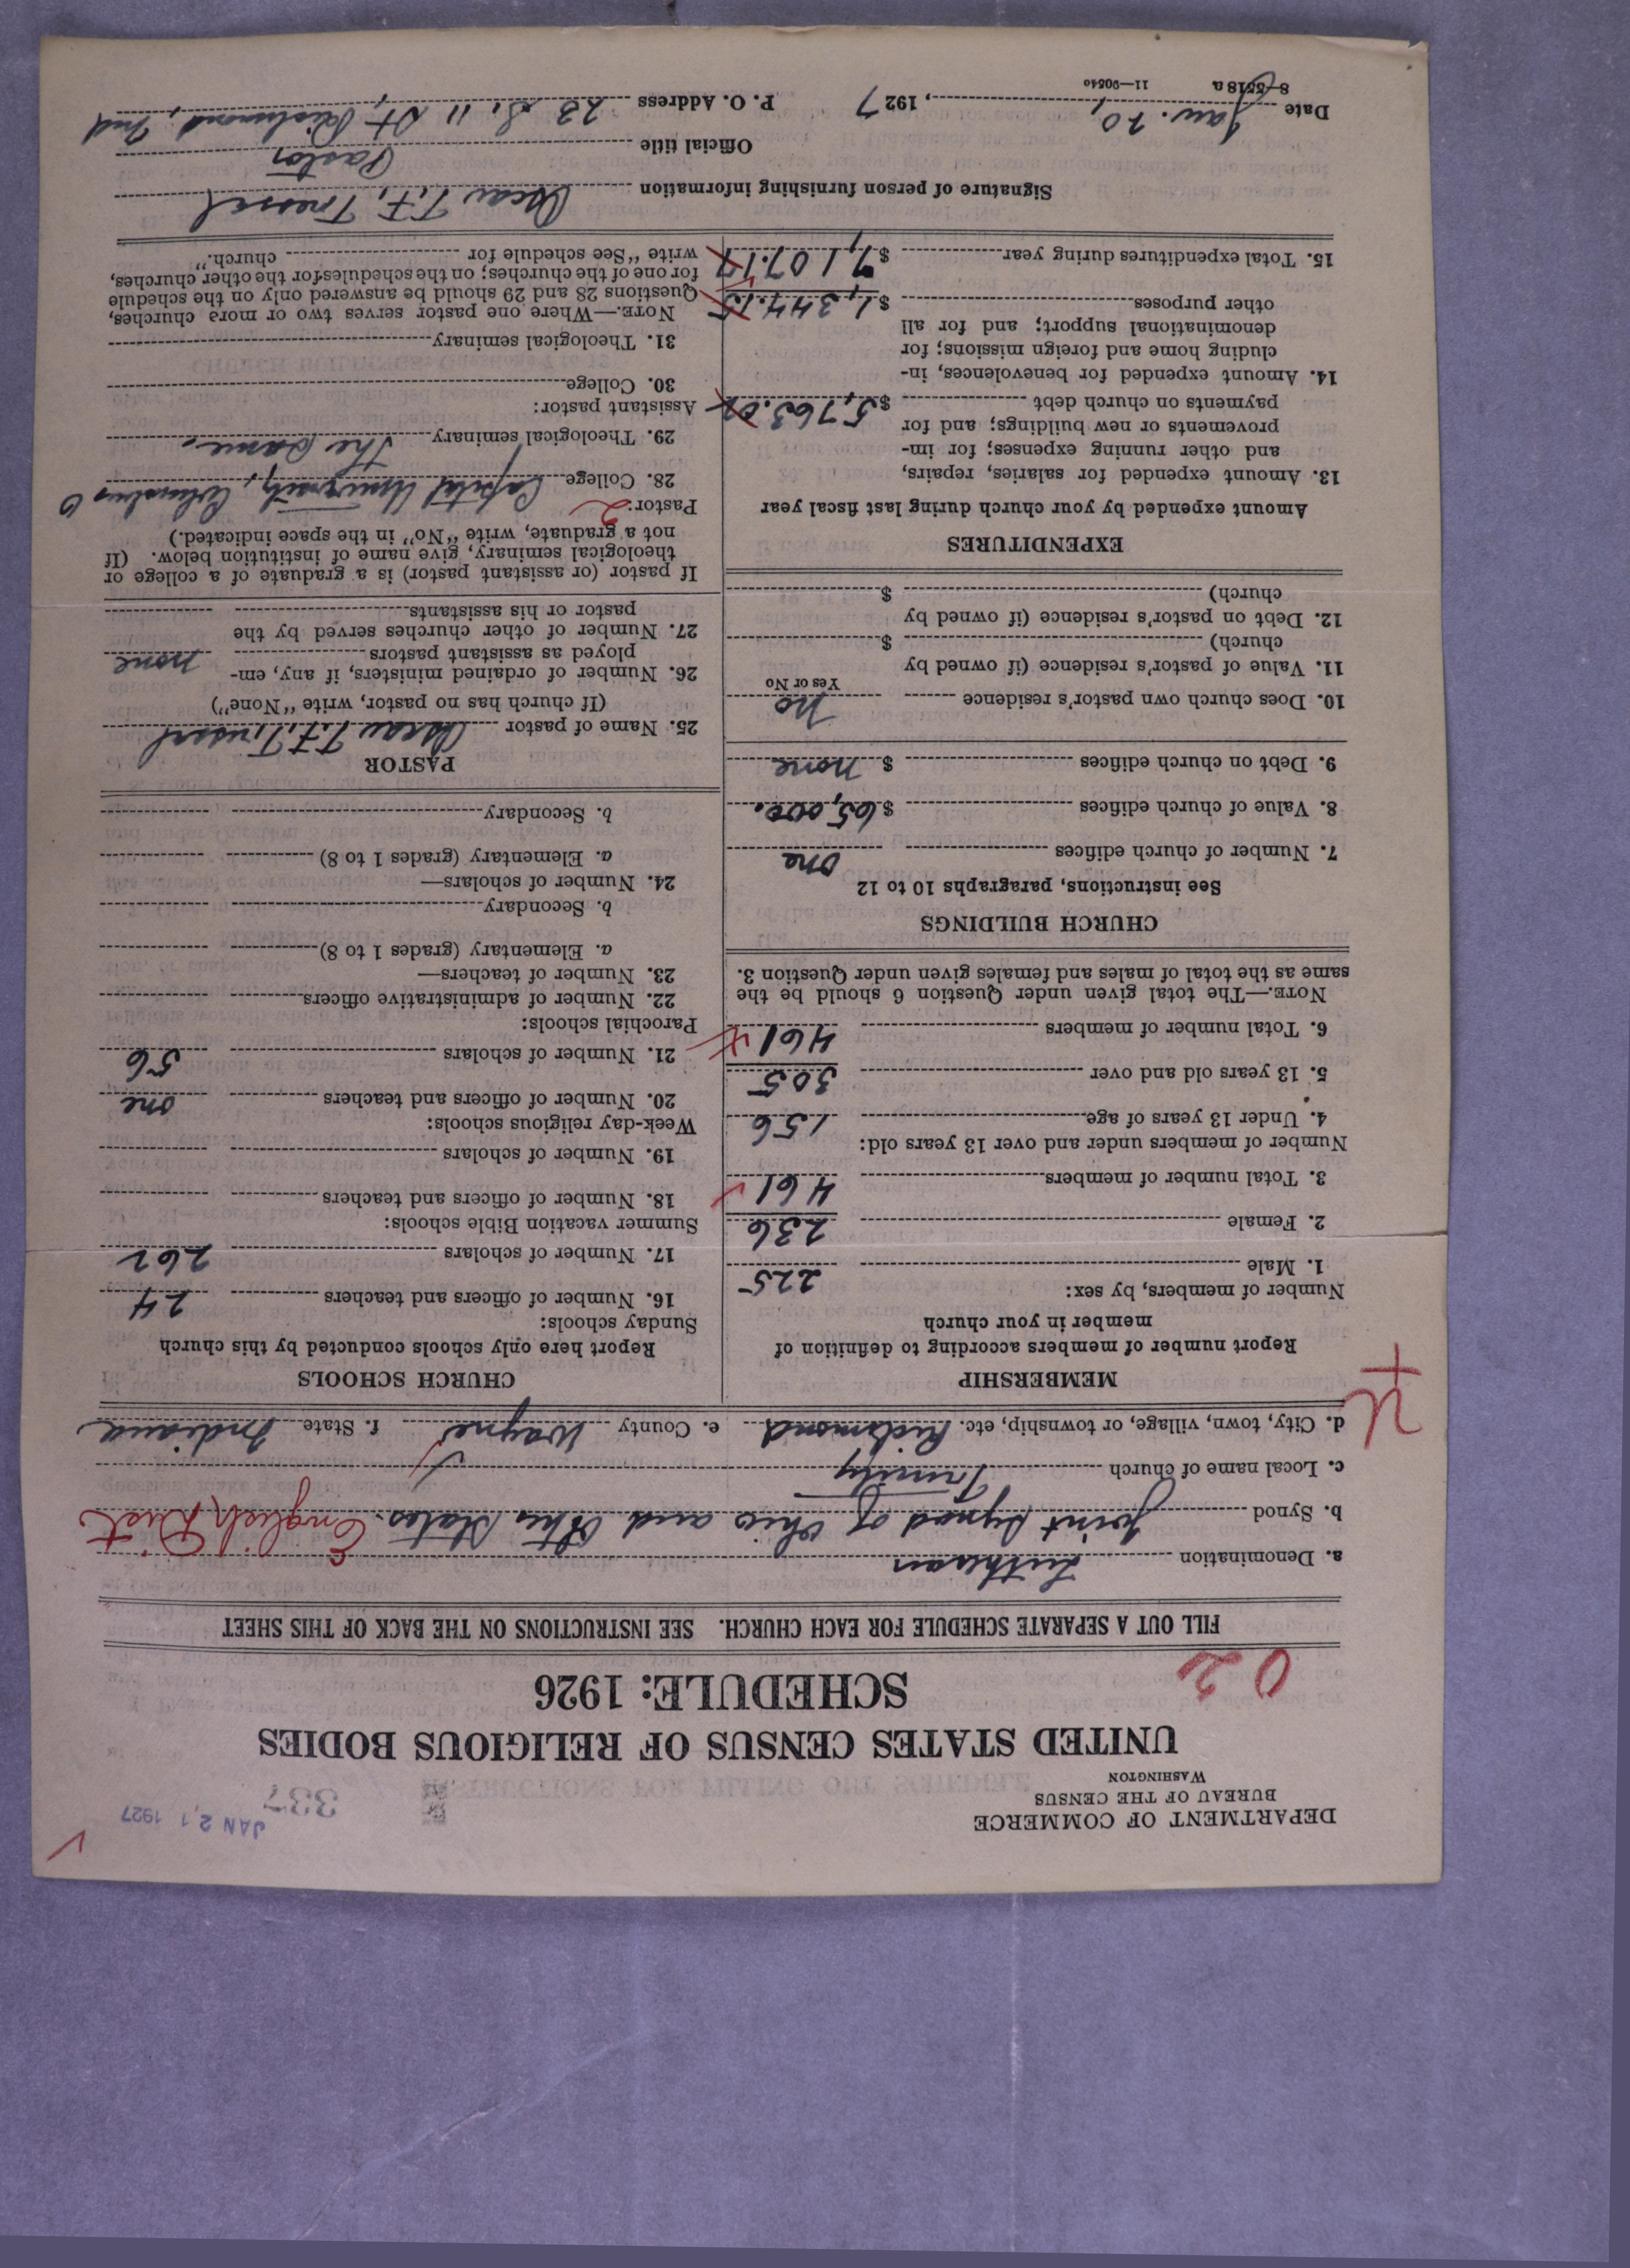 DEPARTMENT OF COMMERCE
BUREAU OF THE CENSUS
WASHINGTON
JAN 21 1927
337
UNITED STATES CENSUS OF RELIGIOUS BODIES
SCHEDULE: 1926
02
FILL OUT A SEPARATE SCHEDULE FOR EACH CHURCH. SEE INSTRUCTIONS ON THE BACK OF THIS SHEET
a. Denomination Lutheran
b. Synod Joint Synod of Ohio and Other States. English Dist
c. Local name of church Trinity
d. City, town, village, or township, etc. Richmond e. County Wayne f. State Indiana
MEMBERSHIP
Report number of members according to definition of
member in your church
Number of members, by sex:
1. Male 225
2. Female 236
3. Total number of members 461
Number of members under and over 13 years old:
4. Under 13 years of age 156
5. 13 years old and over 305
6. Total number of members 461
NOTE.—The total given under Question 6 should be the
same as the total of males and females given under Question 3.
CHURCH BUILDINGS
See instructions, paragraphs 10 to 12
7. Number of church edifices one
8. Value of church edifices $65,000.
9. Debt on church edifices $ none
10. Does church own pastor's residence No
Yes or No
11. Value of pastor's residence (if owned by
church) $
12. Debt on pastor's residence (if owned by
church) $
EXPENDITURES
Amount expended by your church during last fiscal year
13. Amount expended for salaries, repairs,
and other running expenses; for im-
provements or new buildings; and for
payments on church debt $5,763.02
14. Amount expended for benevolences, in-
cluding home and foreign missions; for
denominational support; and for all
other purposes $1,344.15
15. Total expenditures during year $7,107.17
CHURCH SCHOOLS
Report here only schools conducted by this church
Sunday schools:
16. Number of officers and teachers 24
17. Number of scholars 262
Summer vacation Bible schools:
18. Number of officers and teachers
19. Number of scholars
Week-day religious schools:
20. Number of officers and teachers one
21. Number of scholars 56
Parochial schools:
22. Number of administrative officers
23. Number of teachers—
a. Elementary (grades 1 to 8)
b. Secondary
24. Number of scholars—
a. Elementary (grades 1 to 8)
b. Secondary
PASTOR
25. Name of pastor Oscar T.F. Tressel
(If church has no pastor, write "None")
26. Number of ordained ministers, if any, em-
ployed as assistant pastors none
27. Number of other churches served by the
pastor or his assistants
If pastor (or assistant pastor) is a graduate of a college or
theological seminary, give name of institution below. (If
not a graduate, write "No" in the space indicated.)
Pastor: 2
28. College Capital University, Columbus O
29. Theological seminary The same.
Assistant pastor:
30. College
31. Theological seminary
NOTE.—Where one pastor serves two or more churches,
Questions 28 and 29 should be answered only on the schedule
for one of the churches; on the schedules for the other churches,
write "See schedule for church."
Signature of person furnishing information Oscar T.F. Tressel
Official title Pastor
Date Jan. 20, 1927 P. O. Address 23 S. 11 St, Richmond, Ind
8—5518a 11—90540